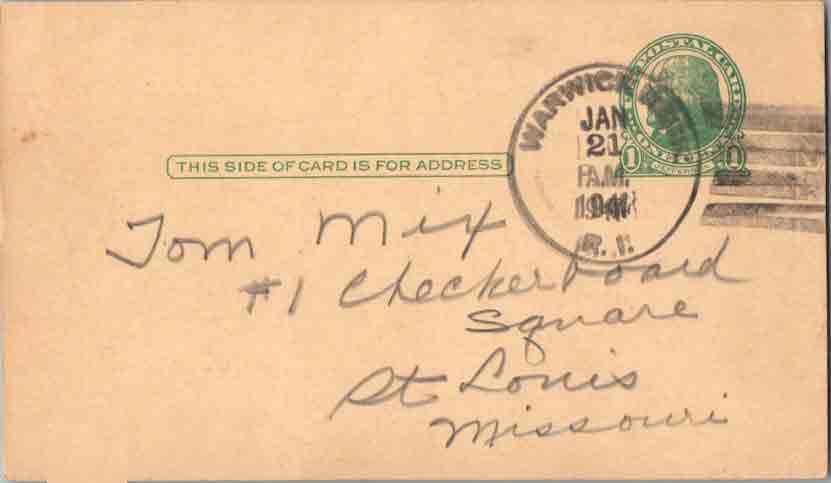 POSTAL CARD
WARWICK
JAN
21
A.M.
1941
R. I.
1 ONE CENT 1
THIS SIDE OF CARD IS FOR ADDRESS
Tom Mix
#1 Checkerboard
Square
St Louis
Missouri